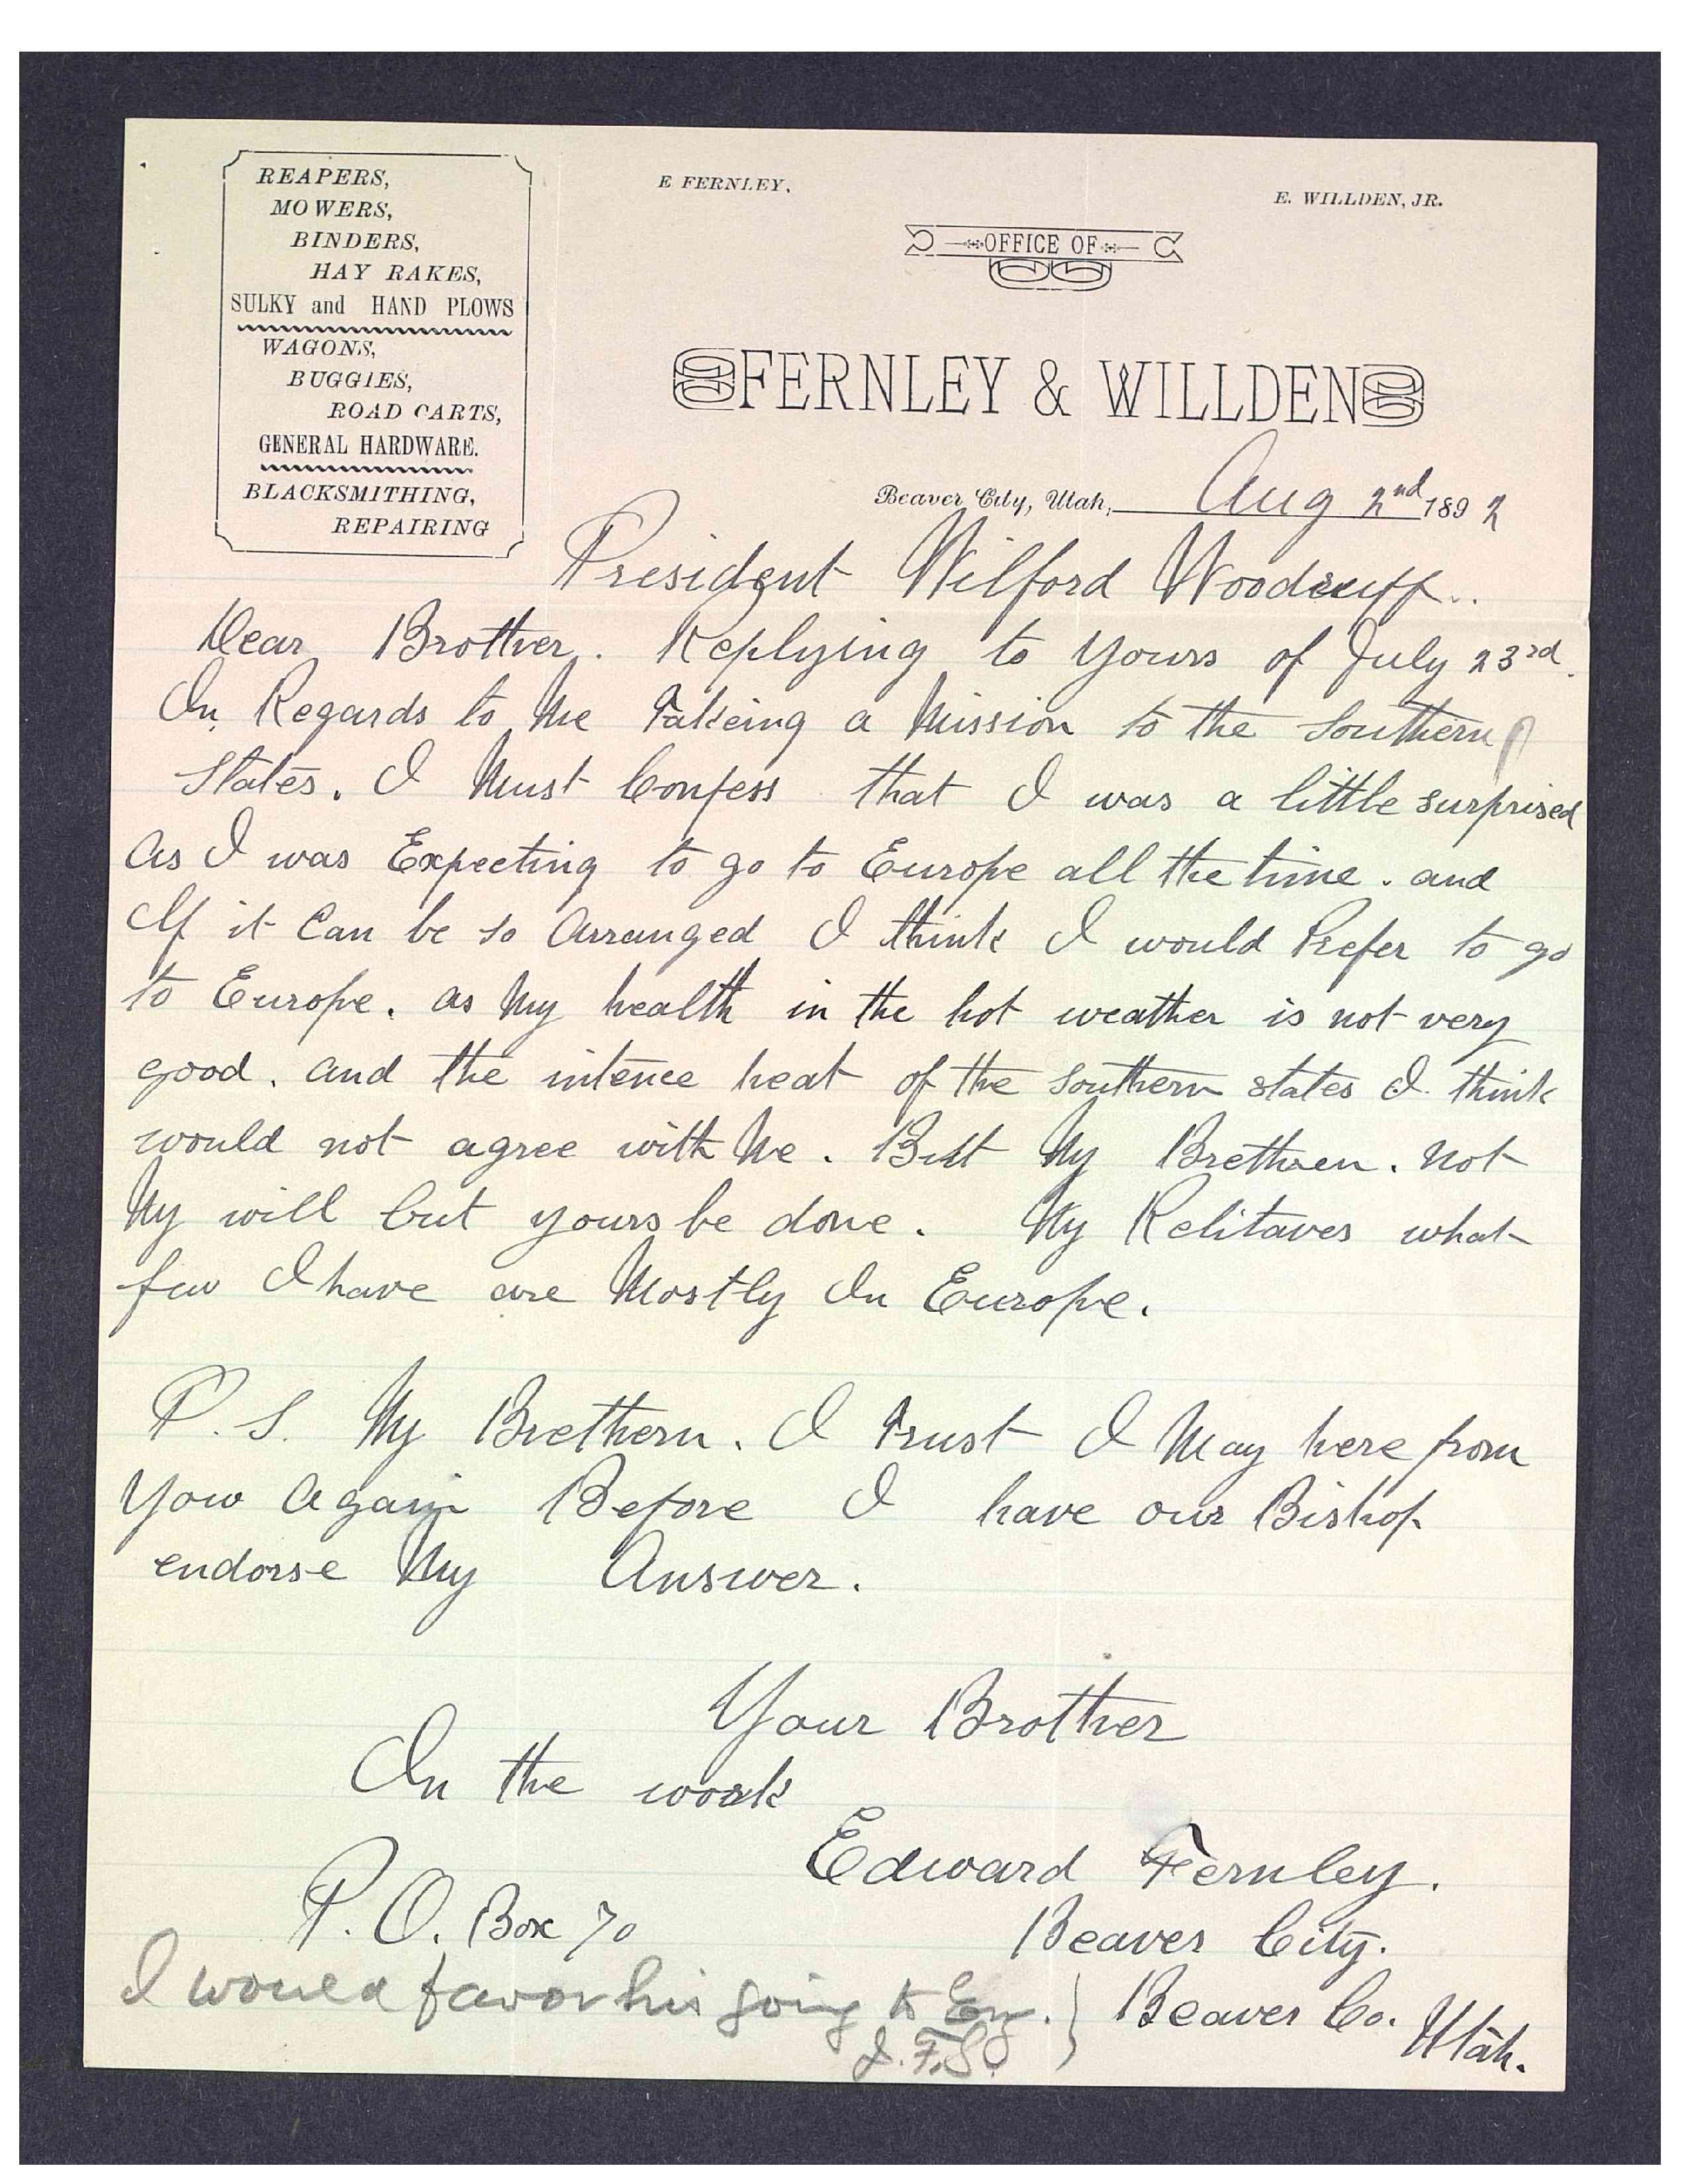 REAPERS,
MOWERS,
BINDERS,
HAY RAKES,
SULKY and HAND PLOWS
WAGONS,
BUGGIES,
ROAD CARTS,
GENERAL HARDWARE.
BLACKSMITHING,
REPAIRING
E FERNLEY,
E. WILLDEN, JR.
OFFICE OF
FERNLEY & WILLDEN
Beaver City, Utah, Aug 2nd 1892
President Wilford Woodruff..
Dear Brother. Replying to yours of July 23rd.
In Regards to Me Takeing a Mission to the Southern
States. I Must Confess that I was a little surprised
as I was Expecting to go to Europe all the time. and
If it Can be so Arranged I think I would Prefer to go
to Europe. as My health in the hot weather is not very
good. and the intence heat of the southern states I think
would not agree with Me. But My Brethren. not
My will but yours be done. My Relitaves what
few I have are Mostly In Europe.
P.S. My Brethern. I trust I May here from
You Again Before I have our Bishop
endorse My Answer.
Your Brother
In the work
Edward Fernley.
P.O. Box 70
Beaver City.
Beaver Co. Utah.
I would favor his going to Eng. }
J.F.S.